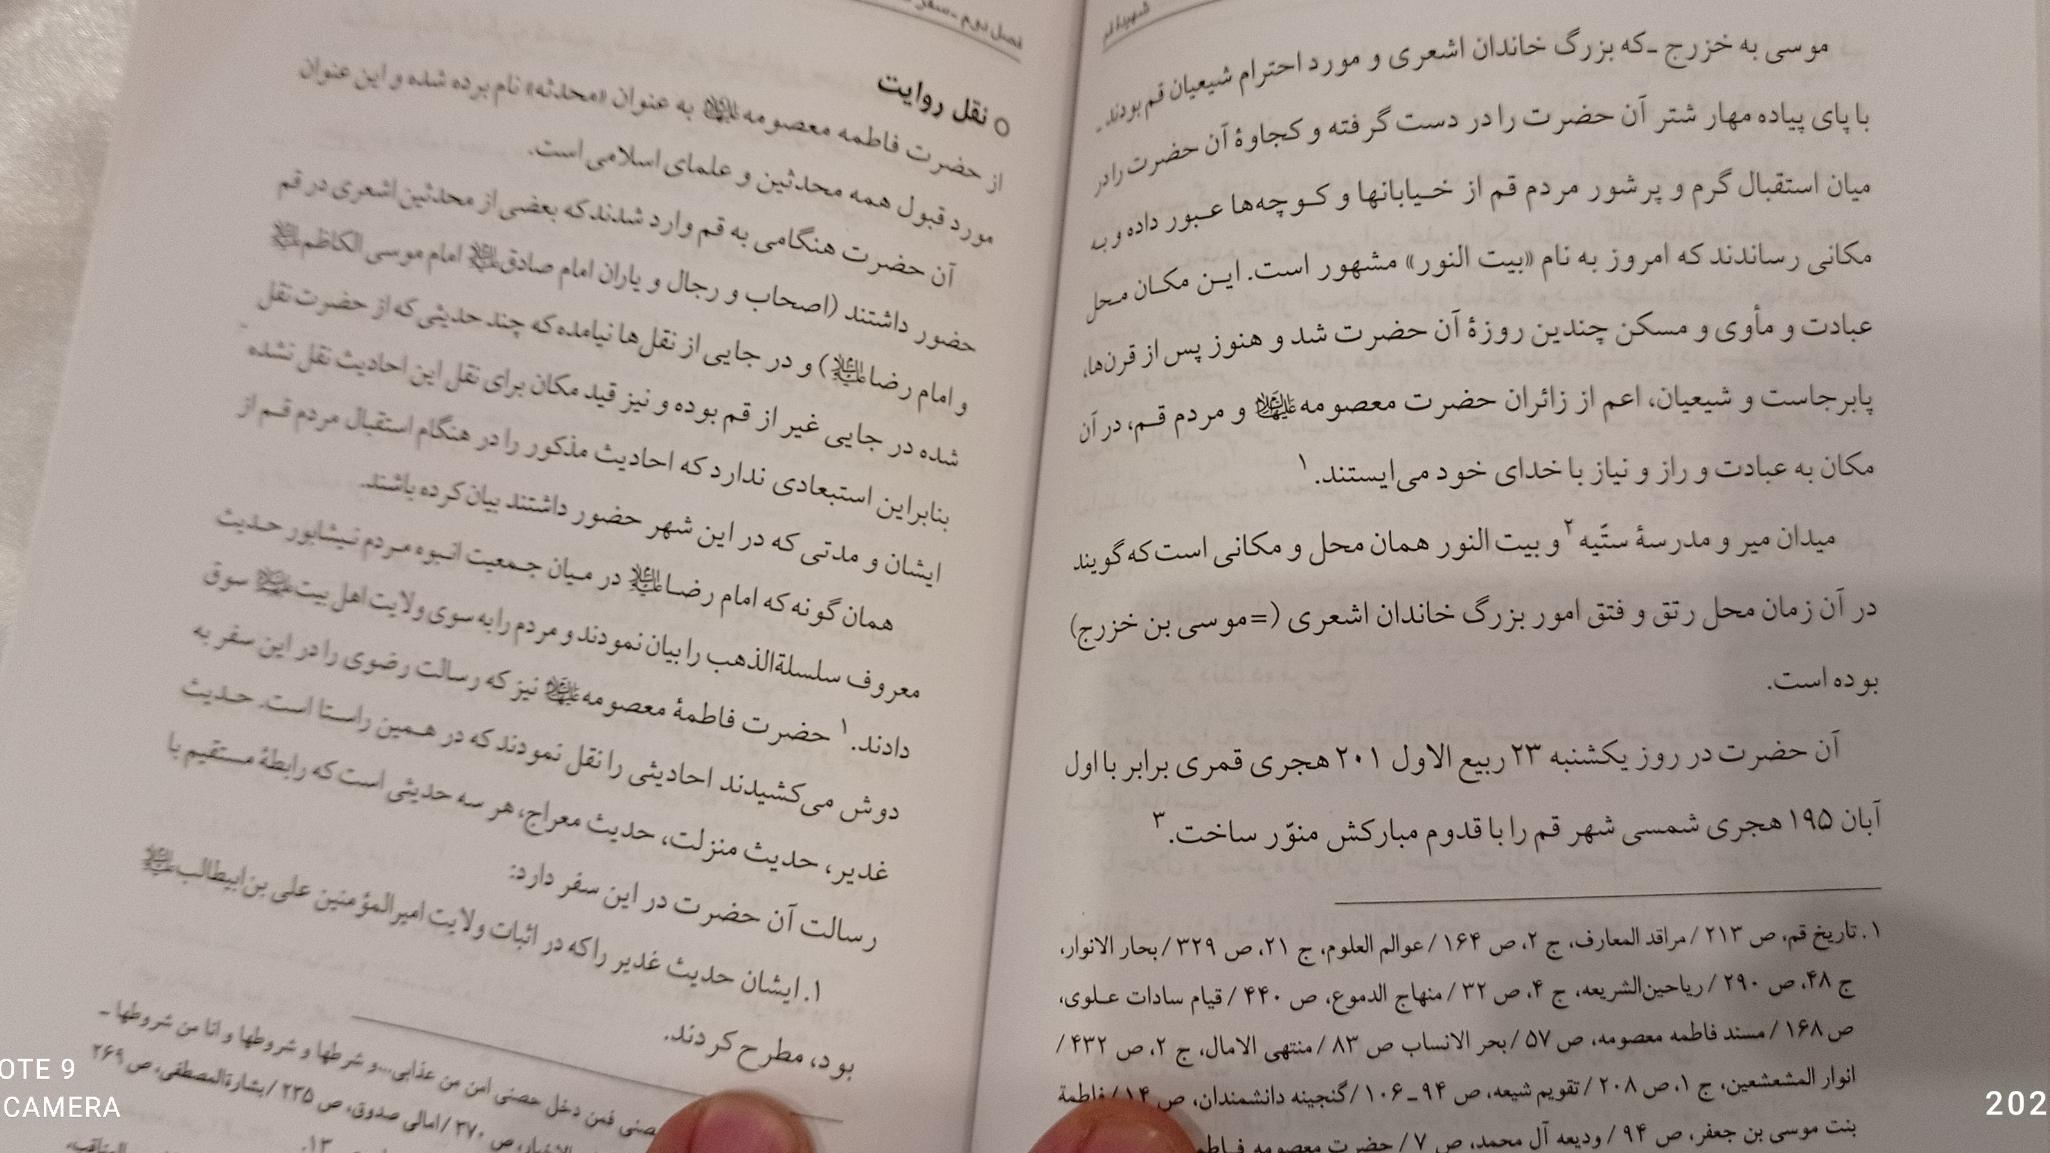 شهیدهٔ قم
موسی به خزرج ـ که بزرگ خاندان اشعری و مورد احترام شیعیان قم بودند ـ
با پای پیاده مهار شتر آن حضرت را در دست گرفته و کجاوهٔ آن حضرت را در
میان استقبال گرم و پرشور مردم قم از خیابانها و کوچه‌ها عبور داده و به
مکانی رساندند که امروز به نام «بیت النور» مشهور است. این مکان محل
عبادت و مأوی و مسکن چندین روزهٔ آن حضرت شد و هنوز پس از قرن‌ها،
پابرجاست و شیعیان، اعم از زائران حضرت معصومه علیهاالسلام و مردم قم، در آن
مکان به عبادت و راز و نیاز با خدای خود می‌ایستند.۱
میدان میر و مدرسهٔ ستّیه۲ و بیت النور همان محل و مکانی است که گویند
در آن زمان محل رتق و فتق امور بزرگ خاندان اشعری (=موسی بن خزرج)
بوده است.
آن حضرت در روز یکشنبه ۲۳ ربیع الاول ۲۰۱ هجری قمری برابر با اول
آبان ۱۹۵ هجری شمسی شهر قم را با قدوم مبارکش منوّر ساخت.۳
۱. تاریخ قم، ص ۲۱۳ / مراقد المعارف، ج ۲، ص ۱۶۴ / عوالم العلوم، ج ۲۱، ص ۳۲۹ / بحار الانوار،
ج ۴۸، ص ۲۹۰ / ریاحین‌الشریعه، ج ۴، ص ۳۲ / منهاج الدموع، ص ۴۴۰ / قیام سادات علوی،
ص ۱۶۸ / مسند فاطمه معصومه، ص ۵۷ / بحر الانساب ص ۸۳ / منتهی الامال، ج ۲، ص ۴۳۲ /
انوار المشعشعین، ج ۱، ص ۲۰۸ / تقویم شیعه، ص ۹۴ ـ ۱۰۶ / گنجینه دانشمندان، ص ۱۴ / فاطمة
بنت موسی بن جعفر، ص ۹۴ / ودیعه آل محمد، ص ۷ / حضرت معصومه
فصل دوم ـ سفر
○ نقل روایت
از حضرت فاطمه معصومه علیهاالسلام به عنوان «محدثه» نام برده شده و این عنوان
مورد قبول همه محدثین و علمای اسلامی است.
آن حضرت هنگامی به قم وارد شدند که بعضی از محدثین اشعری در قم
حضور داشتند (اصحاب و رجال و یاران امام صادق علیه‌السلام امام موسی الکاظم علیه‌السلام
و امام رضا علیه‌السلام) و در جایی از نقل‌ها نیامده که چند حدیثی که از حضرت نقل
شده در جایی غیر از قم بوده و نیز قید مکان برای نقل این احادیث نقل نشده
بنابراین استبعادی ندارد که احادیث مذکور را در هنگام استقبال مردم قم از
ایشان و مدتی که در این شهر حضور داشتند بیان کرده باشند.
همان گونه که امام رضا علیه‌السلام در میان جمعیت انبوه مردم نیشابور حدیث
معروف سلسلةالذهب را بیان نمودند و مردم را به سوی ولایت اهل بیت علیهم‌السلام سوق
دادند.۱ حضرت فاطمهٔ معصومه علیهاالسلام نیز که رسالت رضوی را در این سفر به
دوش می‌کشیدند احادیثی را نقل نمودند که در همین راستا است. حدیث
غدیر، حدیث منزلت، حدیث معراج، هر سه حدیثی است که رابطهٔ مستقیم با
رسالت آن حضرت در این سفر دارد:
۱. ایشان حدیث غدیر را که در اثبات ولایت امیرالمؤمنین علی بن‌ابیطالب علیه‌السلام
بود، مطرح کردند.
فمن دخل حصنی امن من عذابی...و شرطها و شروطها و انا من شروطها ـ
ص ۳۷۰ / امالی صدوق، ص ۲۳۵ / بشارةالمصطفی، ص ۲۶۹
۱۳.
OTE 9
CAMERA
202